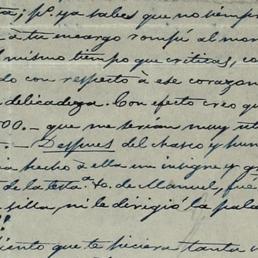 ; pª. ya sabes que no siempre
á tu encargo rompí al mo
mismo tiempo que criticas, co
do con respecto á ese corazon
delicadeza. Con efecto creo qu
00.— que me serian muy uti
— Despues del chasco y
ia hecho á ella un insigne y
de la testª. de Manuel, fué
silla, ni le dirigió la pala
!
iento que te hiciera tanta